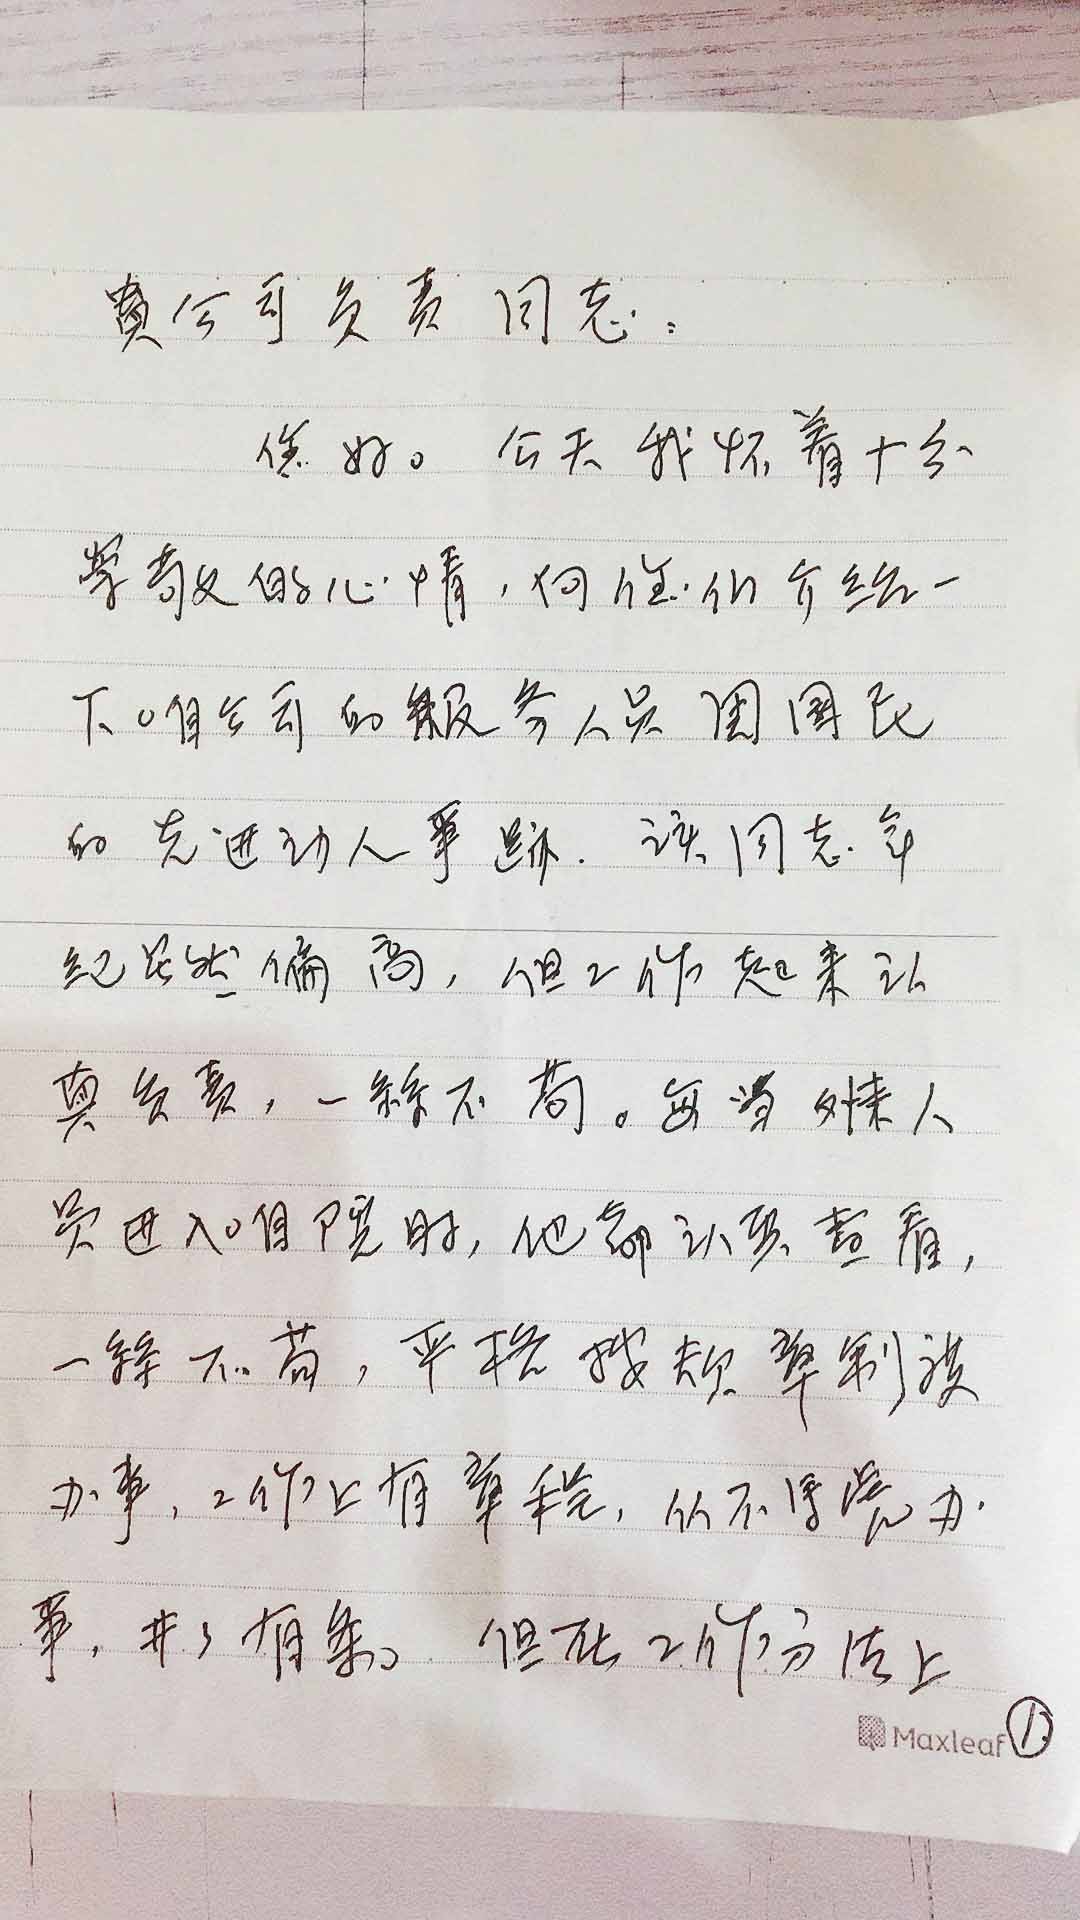 贵公司负责同志：
您好。今天我怀着十分
崇敬的心情，向您们介绍一
下咱公司的服务人员周国民
的先进动人事迹．该同志年
纪虽然偏高，但工作起来认
真负责，一丝不苟。每当外来人
员进入咱院时，他都认真查看，
一丝不苟，严格按照章制度
办事，工作上有章程，从不得混办
事，井々有条。但在工作方法上
Maxleaf ①